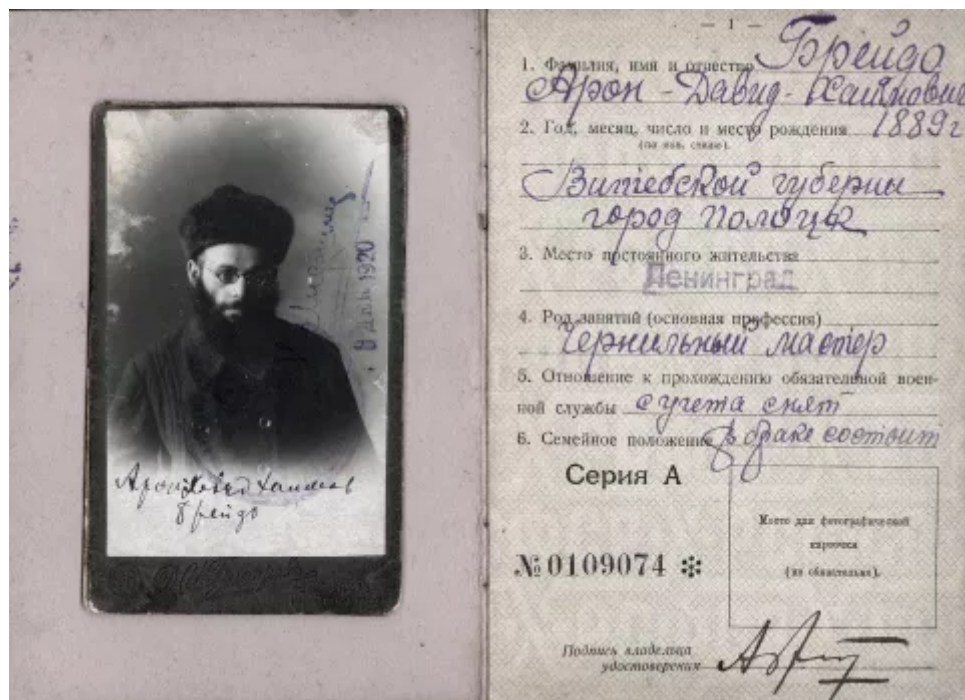 Арон Давид Хаимов
Брейдо
8 ДЕК 1920
— 1 —
1. Фамилия, имя и отчество Брейдо
Арон-Давид-Хаимович
2. Год, месяц, число и место рождения 1889г
(по нов. стилю).
Витебской губерны
город Полоцк
3. Место постоянного жительства
Ленинград
4. Род занятий (основная профессия)
Чернильный мастер
5. Отношение к прохождению обязательной воен-
ной службы с учета снят
6. Семейное положение в браке состоит
Серия А
Место для фотографической
карточки
(не обязательно).
№ 0109074 ✻
Подпись владельца
удостоверения